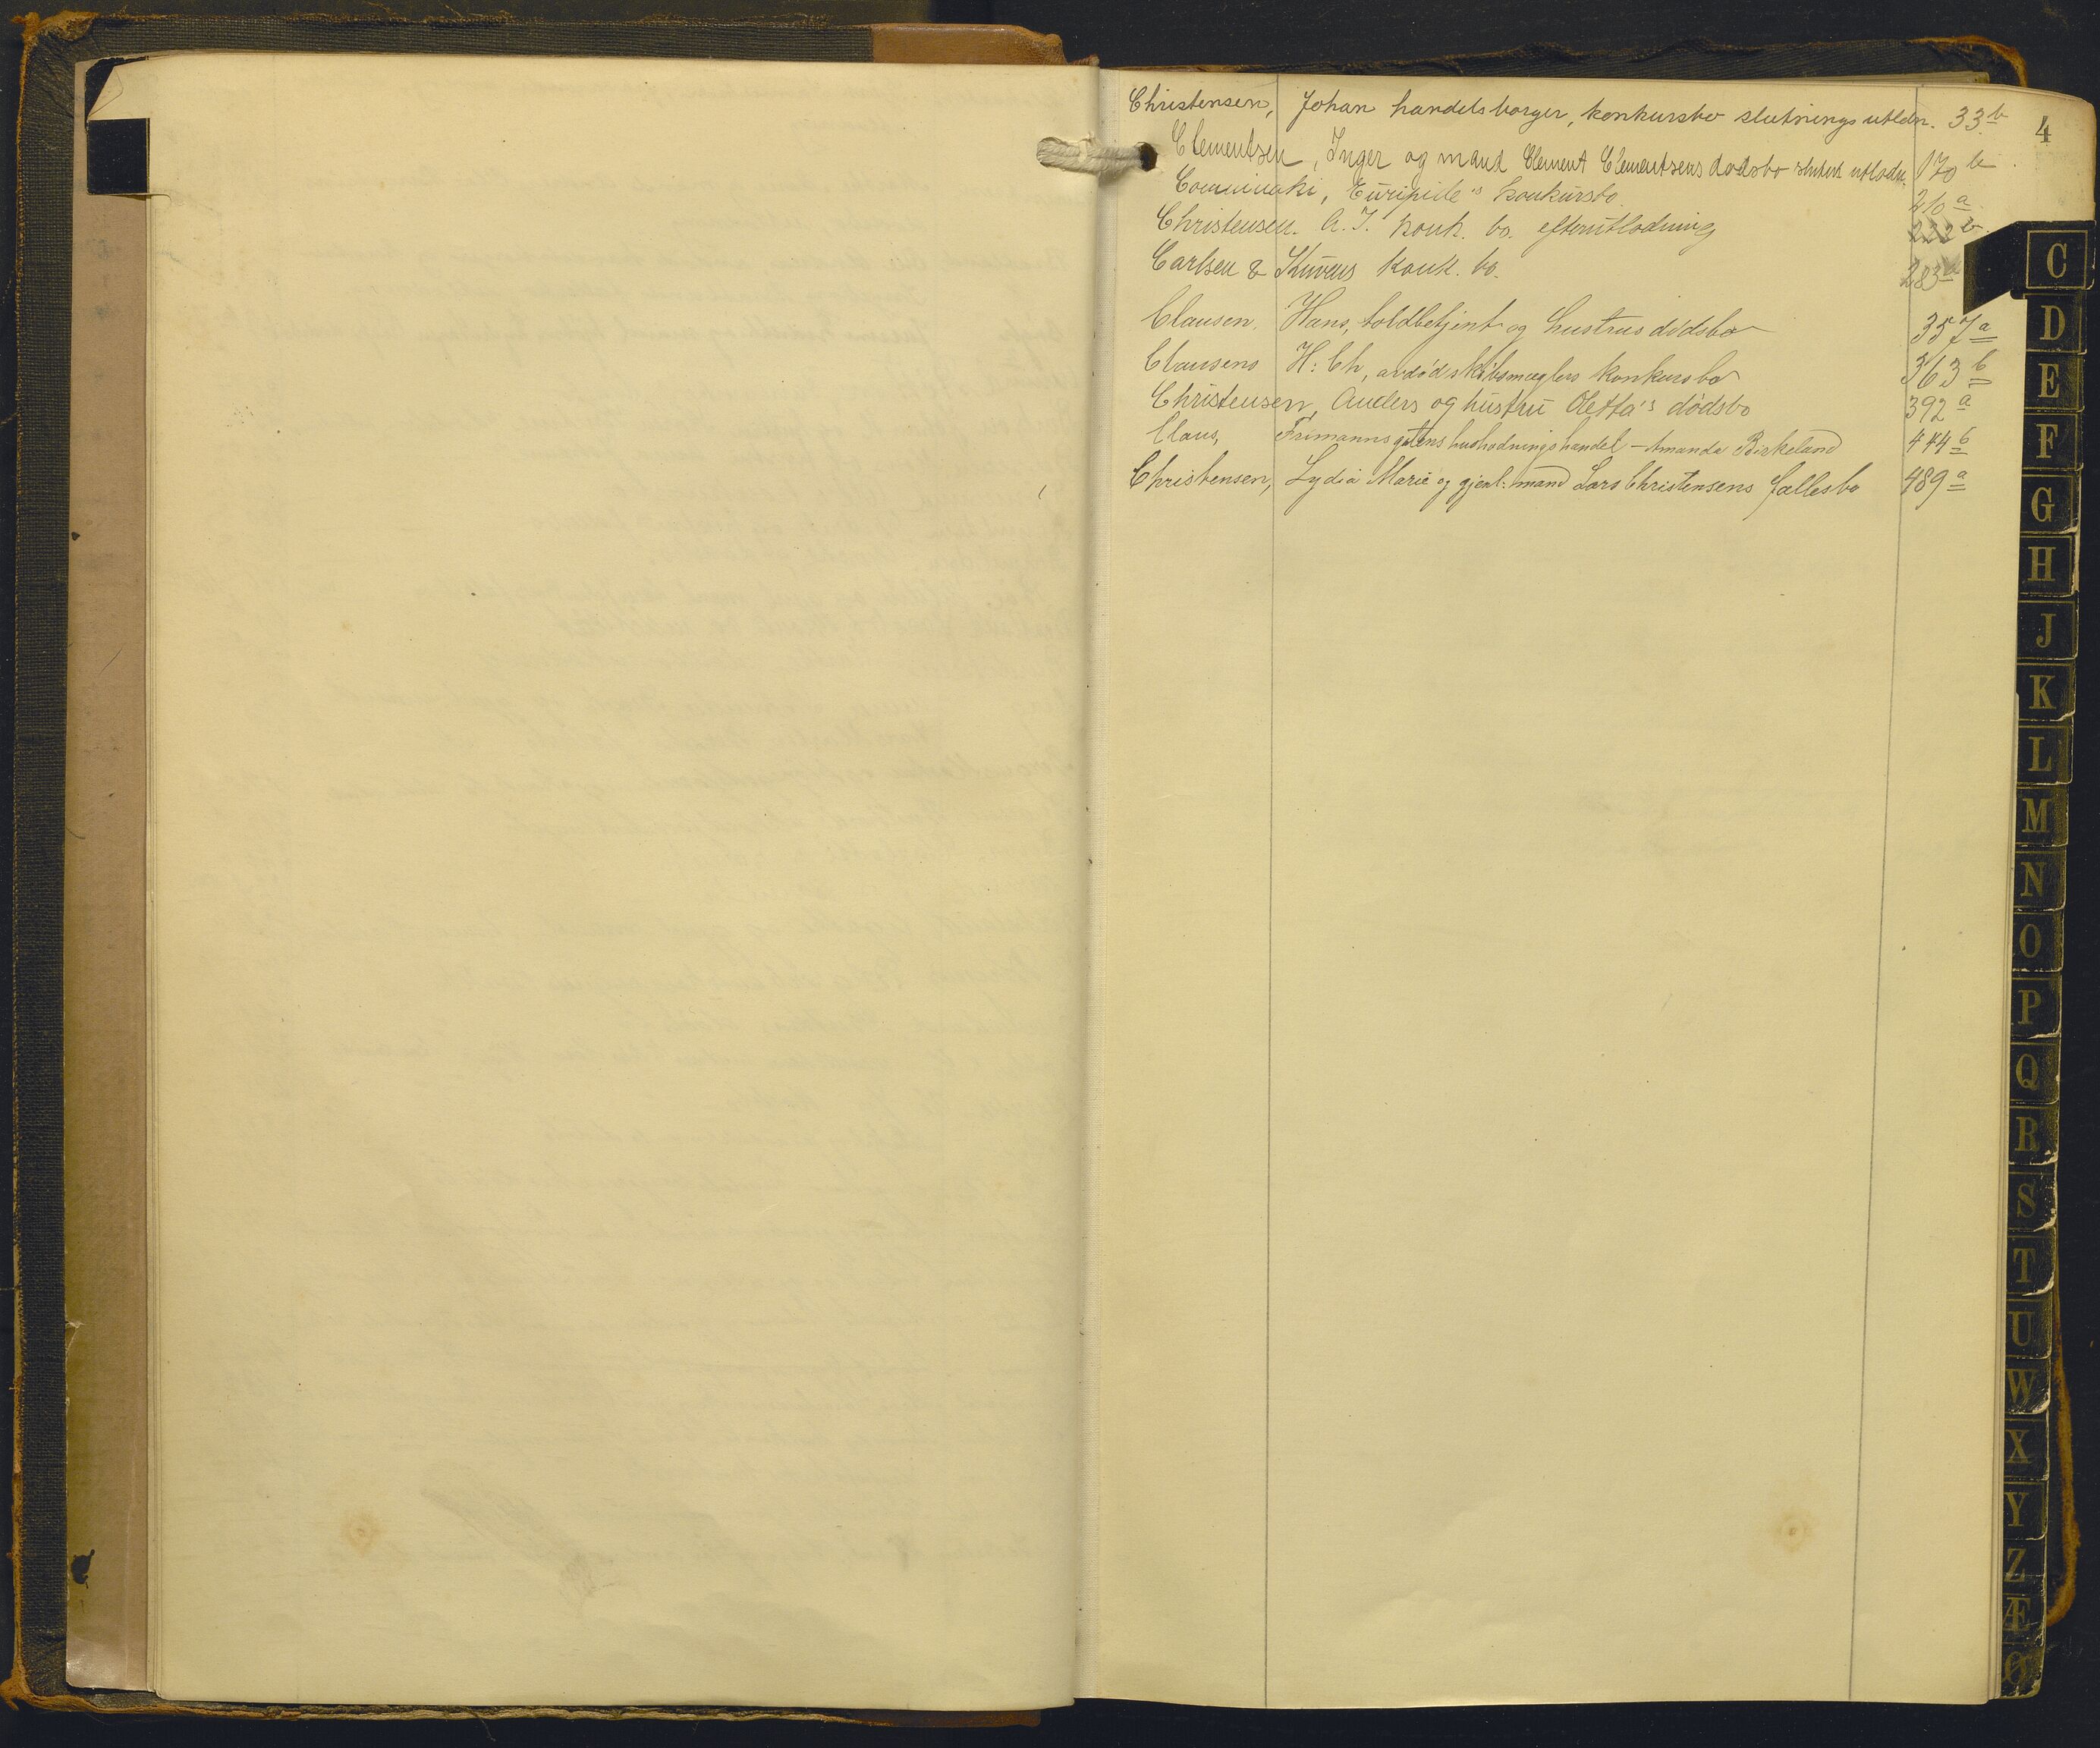 4
Christensen, Johan handelsborger, konkursbo slutningsutlodn. 33 b
Clementsen, Inger og mand Clement Clementsens dødsbo sluttet utlodn. 170 b
Euripide's konkursbo. 210 a
Christensen. A. J. konk. bo. efterutlodning 222 b
Carlsen & konk. bo. 283 a
Clausen. Hans, toldbetjent og hustrus dødsbo 357 a
Clausens H: Ch, avdød skibsmæglers konkursbo 363 b
Christensen, Anders og hustru Oletta's dødsbo 392 a
Claus, Frimanns gatens husholdningshandel – Amanda Birkeland 444 b
Christensen, Lydia Marie og gjenl: mand Lars Christensens fællesbo 489 a
C
D
E
F
G
H
J
K
L
M
N
O
P
Q
R
S
T
U
W
X
Y
Z
Æ
Ø